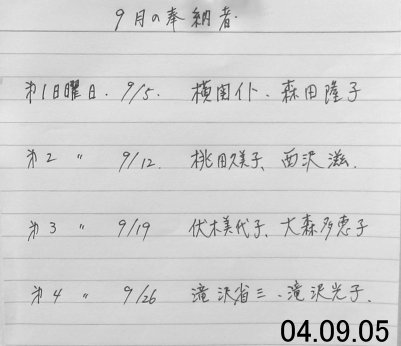 9月の奉納者.
才1日曜日. 9/5. 横田仆. 森田隆子
才2 〃 9/12. 桃田久美子、西沢滋.
才3 〃 9/19 伏木美代子、大森多恵子
才4 〃 9/26 滝沢省三、滝沢光子.
04.09.05